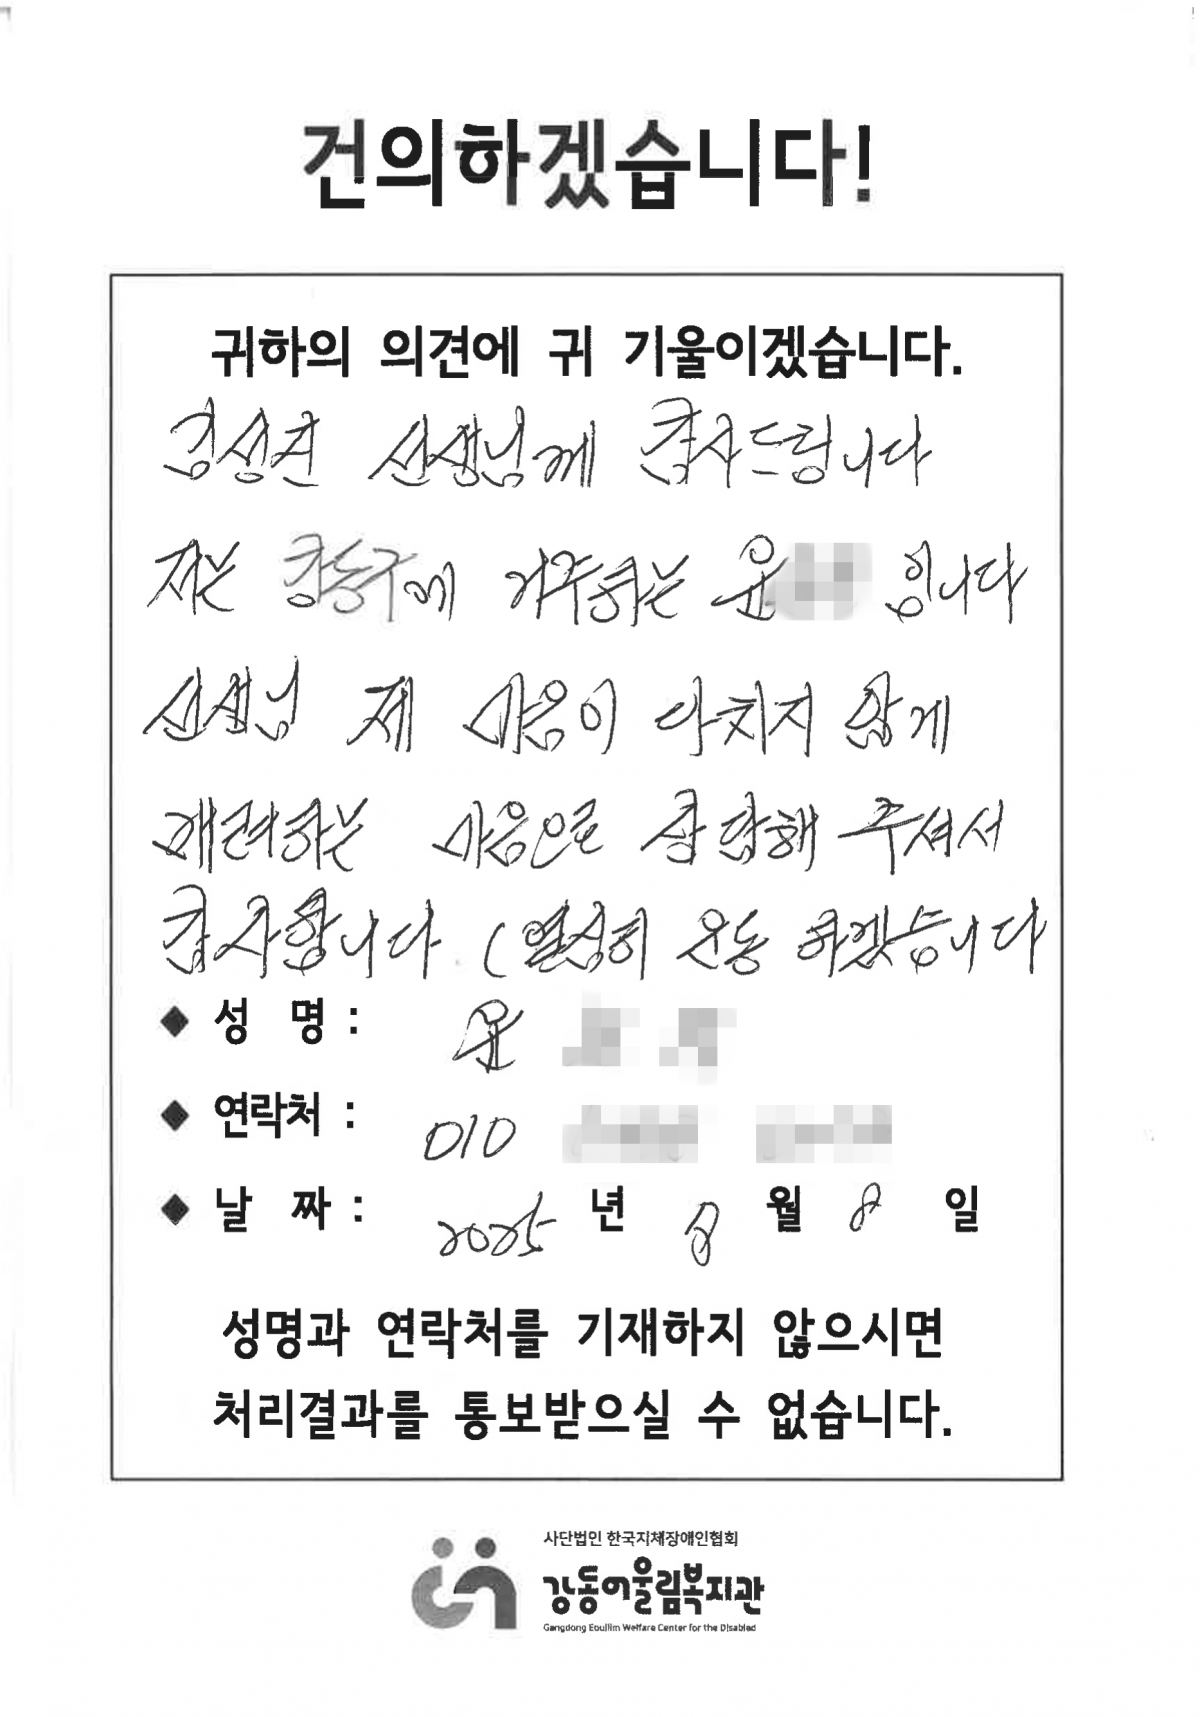 건의하겠습니다!
귀하의 의견에 귀 기울이겠습니다.
김성진 선생님께 감사드립니다
저는 강동구에 거주하는 윤 입니다
선생님 제 마음이 다치지 않게
배려하는 마음으로 상담해 주셔서
감사합니다 (열심히 운동 하겠습니다
◆ 성 명 : 윤
◆ 연락처 : 010
◆ 날 짜 : 2025 년 8 월 8 일
성명과 연락처를 기재하지 않으시면
처리결과를 통보받으실 수 없습니다.
사단법인 한국지체장애인협회
강동어울림복지관
Gangdong Eoullim Welfare Center for the Disabled